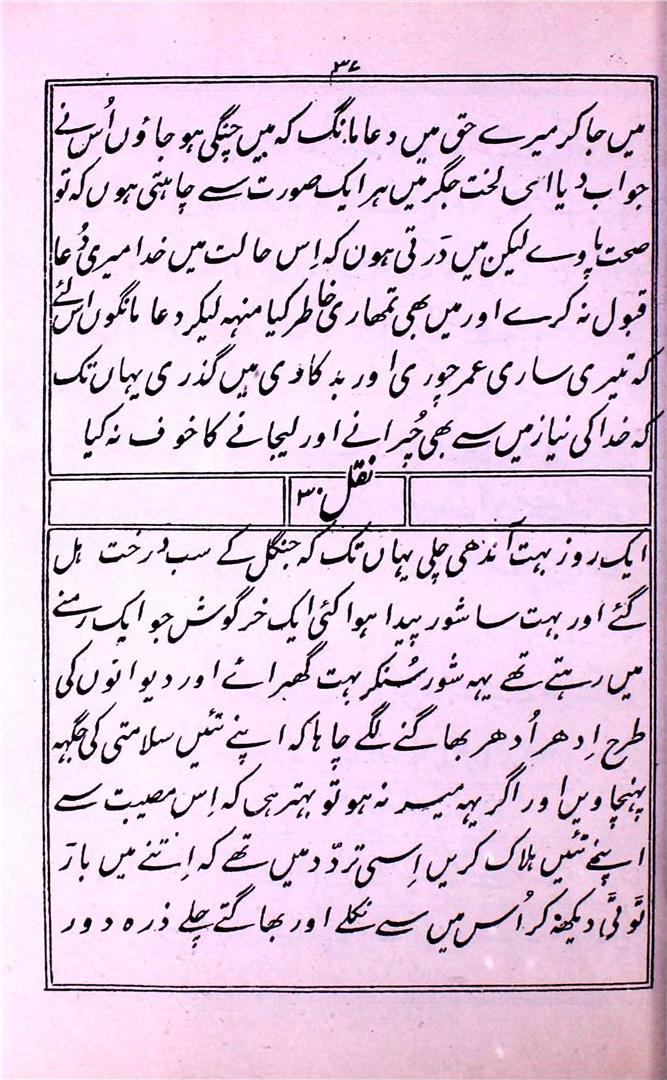 ۳۷
میں جا کر میرے حق میں دعا مانگ کہ میں چنگی ہو جاؤں اُس نے
جواب دیا ای لخت جگر میں ہر ایک صورت سے چاہتی ہوں کہ تو
صحت پاوے لیکن میں ڈرتی ہون کہ اِس حالت میں خدا میری دُعا
قبول نہ کرے اور میں بھی تمھاری خاطر کیا منہہ لیکر دعا مانگوں اس لئے
کہ تیری ساری عمر چوری اور بدکاری میں گذری یہاں تک
کہ خدا کی نیاز میں سے بھی چُرانے اور لیجانے کا خوف نہ کیا
نقل ۳۰
ایک روز بہت آندھی چلی یہاں تک کہ جنگل کے سب درخت ہل
گئے اور بہت سا شور پیدا ہوا کئی ایک خرگوش جو ایک رمنے
میں رہتے تھے یہہ شور سُنکر بہت گھبرائے اور دیوانوں کی
طرح اِدھر اُدھر بھاگنے لگے چاہا کہ اپنے تئیں سلامتی کی جگہہ
پہنچاویں اور اگر یہہ میسر نہ ہو تو بہتر ہی کہ اِس مصیبت سے
اپنے تئیں ہلاک کریں اِسی تردّد میں تھے کہ اِتنے میں باڑ
ٹوٹی دیکھہ کر اُس میں سے نکلے اور بھاگتے چلے ذرہ دور